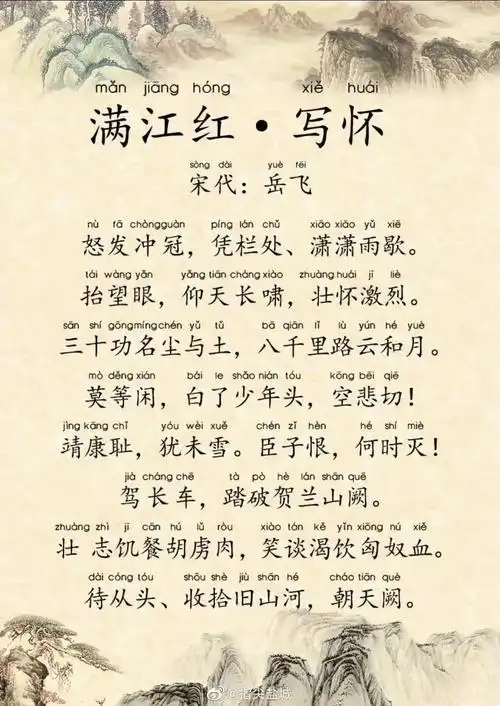 mǎn jiāng hóng xiě huái
满江红·写怀
sòng dài yuè fēi
宋代：岳飞
nù fā chòngguàn píng lán chǔ xiāo xiāo yǔ xiē
怒发冲冠，凭栏处、潇潇雨歇。
tái wàng yǎn yǎng tiān cháng xiào zhuàng huái jī liè
抬望眼，仰天长啸，壮怀激烈。
sān shí gōngmíng chén yǔ tǔ bā qiān lǐ lù yún hé yuè
三十功名尘与土，八千里路云和月。
mò děng xián bái le shǎo nián tóu kōng bēi qiē
莫等闲，白了少年头，空悲切！
jìng kāng chǐ yóu wèi xuě chén zǐ hèn hé shí miè
靖康耻，犹未雪。臣子恨，何时灭！
jià cháng chē tà pò hè lán shān quē
驾长车，踏破贺兰山阙。
zhuàng zhì jī cān hú lǔ ròu xiào tán kě yǐn xiōng nú xiě
壮 志饥餐胡虏肉，笑谈渴饮匈奴血。
dài cóng tóu shōu shè jiù shān hé cháo tiān què
待从头、收拾旧山河，朝天阙。
@指尖盐城